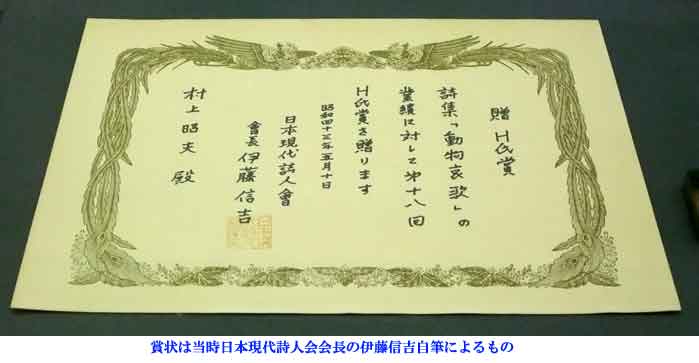 贈 H氏賞
詩集「動物哀歌」の
業績に対して第十八回
H氏賞を贈ります
昭和四十三年五月十日
日本現代詩人會
會長 伊藤信吉
村上昭夫殿
賞状は当時日本現代詩人会会長の伊藤信吉自筆によるもの